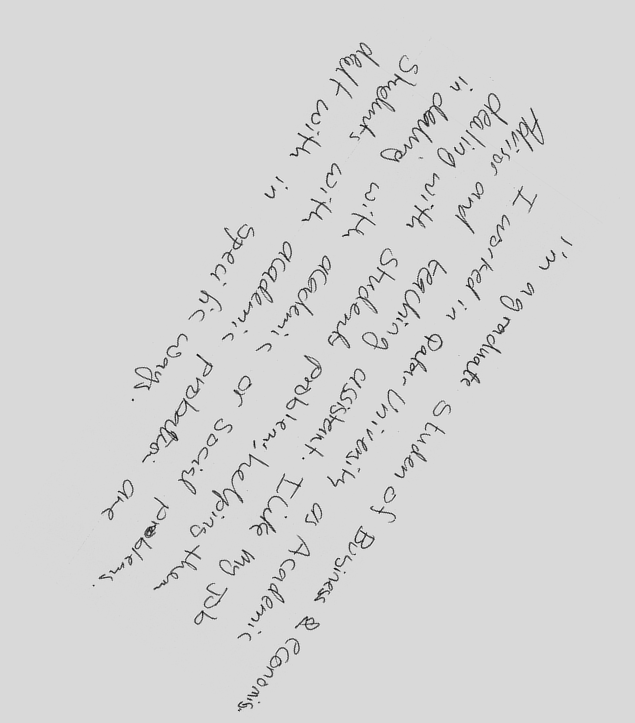 I'm a graduate studen of Business & economis.
I worked in Qatar University as Academic
Advisor and teaching assistant. I like my job
in dealing with students problem, helping them
dealing with academic or social problems.
Students with academic probation are
delt with in specific ways.